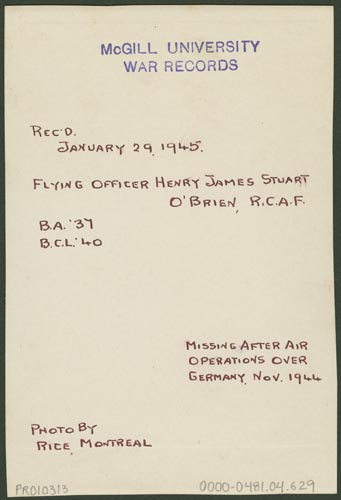 McGILL UNIVERSITY
WAR RECORDS
REC'D.
JANUARY 29, 1945.
FLYING OFFICER HENRY JAMES STUART
O'BRIEN, R.C.A.F.
B.A. '37
B.C.L. '40
MISSING AFTER AIR
OPERATIONS OVER
GERMANY, NOV. 1944
PHOTO BY
RICE, MONTREAL
PR010313
0000-0481.04.629